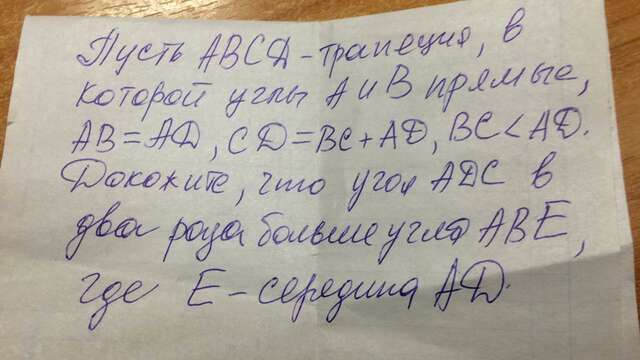 Пусть ABCD - трапеция, в
которой углы A и B прямые,
AB = AD, CD = BC + AD, BC < AD.
Докажите, что угол ADC в
два раза больше угла ABE,
где E - середина AD.